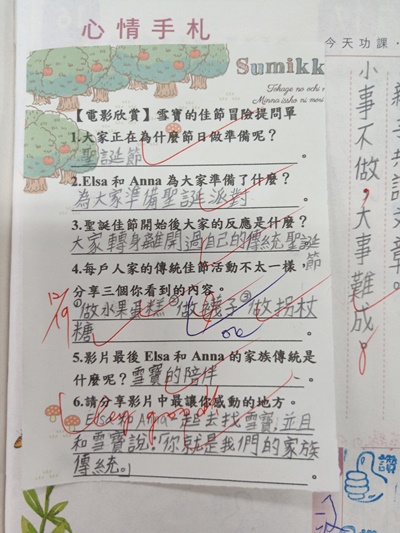 心情手札
今天功課
Sumikk
Tokage no ochi
Minna issho ni
【電影欣賞】雪寶的佳節冒險提問單
1.大家正在為什麼節日做準備呢？
聖誕節。
2.Elsa 和 Anna 為大家準備了什麼？
為大家準備聖誕派對。
3.聖誕佳節開始後大家的反應是什麼？
大家轉身離開過自己的傳統聖誕節。
4.每戶人家的傳統佳節活動不太一樣，
分享三個你看到的內容。
12/19
①做水果蛋糕②做襪子③做拐杖
糖。
5.影片最後 Elsa 和 Anna 的家族傳統是
什麼呢？雪寶的陪伴。
6.請分享影片中最讓你感動的地方。
Elsa和Anna一起去找雪寶,並且
和雪寶說:「你就是我們的家族
傳統。」
Very good
小事不做，大事難成。
讚